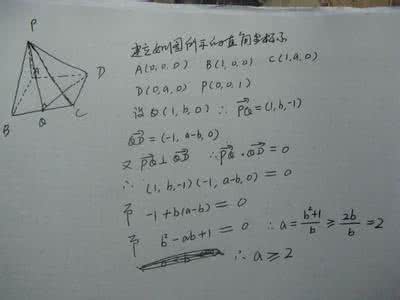 P
A
D
B
Q
C
建立如图所示的直角坐标系
A(0,0,0) B(1,0,0) C(1,a,0)
D(0,a,0) P(0,0,1)
设Q(1,b,0) ∴ PQ=(1,b,-1)
QD=(-1,a-b,0)
又 PQ⊥QD ∴PQ·QD=0
∴ (1,b,-1)(-1,a-b,0)=0
即 -1+b(a-b)=0
即 b²-ab+1=0 ∴a=b²+1/b≥2b/b=2
∴a≥2